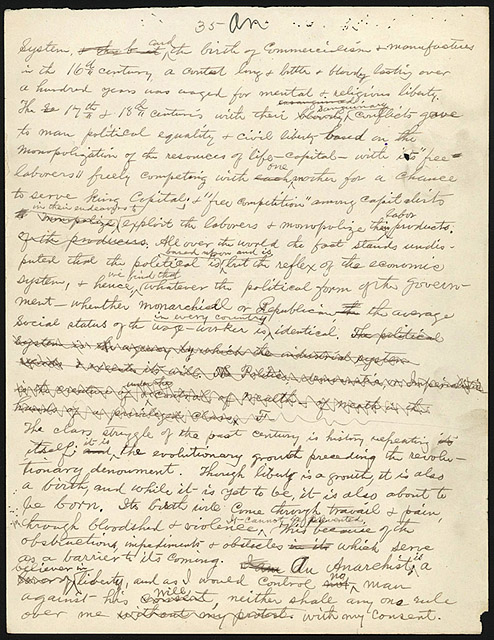 35- an
system, & the birth of Commercialism & manufactures
in the 16th century, a contest long & bitter & bloody, lasting over
a hundred years was waged for mental & religious liberty.
The 17th & 18th centuries with their sanguinary conflicts gave
to man political equality & civil liberty based on the
monopolization of the resources of life-capital-with its "free
laborers" freely competing with one another for a chance
to serve King Capital, & "free competition" among capitalists
in their endeavors to exploit the laborers & monopolize the labor products.
All over the world the fact stands undis-
puted that the political is based upon, and is but the reflex of the economic
system, & hence we find that whatever the political form of the Govern-
ment-whether monarchical or Republican the average
social status of the wage-worker is in every country identical. The political
system is the agency by which the industrial system
The class struggle of the past century is history repeating
itself; it is the evolutionary growth preceding the revolu-
tionary denoument. Though liberty is a growth, it is also
a birth, and while it is yet to be, it is also about to
be born. Its birth will come through travail & pain,
through bloodshed & violence. It cannot be prevented. This because of the
obstructions, impediments & obstacles which serve
as a barrier to its coming. An Anarchist is a
believer in liberty, and as I would control no man
against his will, neither shall any one rule
over me with my consent.